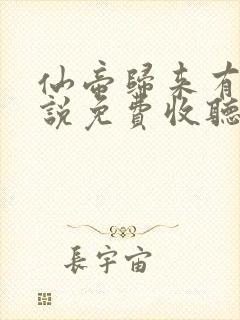 仙帝歸來有
說免費收聽
長宇宙